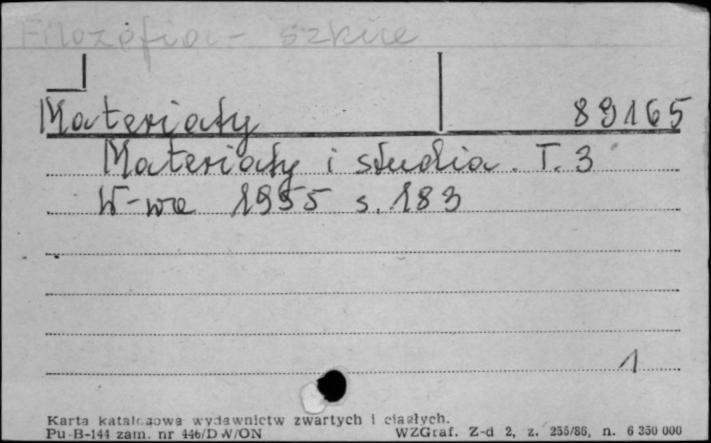 Filozofia - szkice
Materiały 89165
Materiały i studia. T. 3
W-wa 1955 s. 183
1
Karta katalogowa wydawnictw zwartych i ciągłych.
Pu-B-144 zam. nr 446/DW/ON WZGraf. Z-d 2, z. 255/86, n. 6 350 000